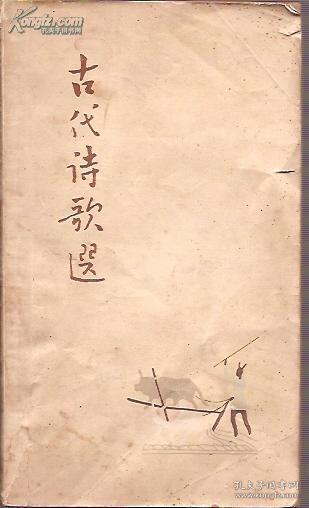 Kongfz.com
孔夫子旧书网
古代诗歌選
孔夫子旧书网
www.kongfz.com